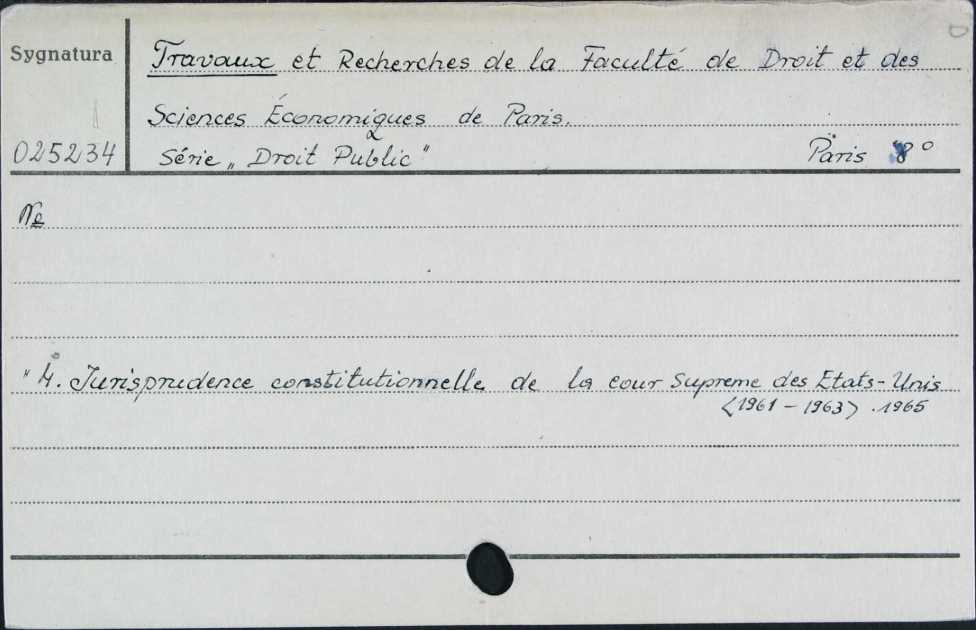 Sygnatura
Travaux et Recherches de la Faculté de Droit et des
Sciences Économiques de Paris.
025234
Série „Droit Public"
Paris 8°
№
4. Jurisprudence constitutionnelle de la cour Supreme des Etats-Unis
<1961 – 1963> . 1965